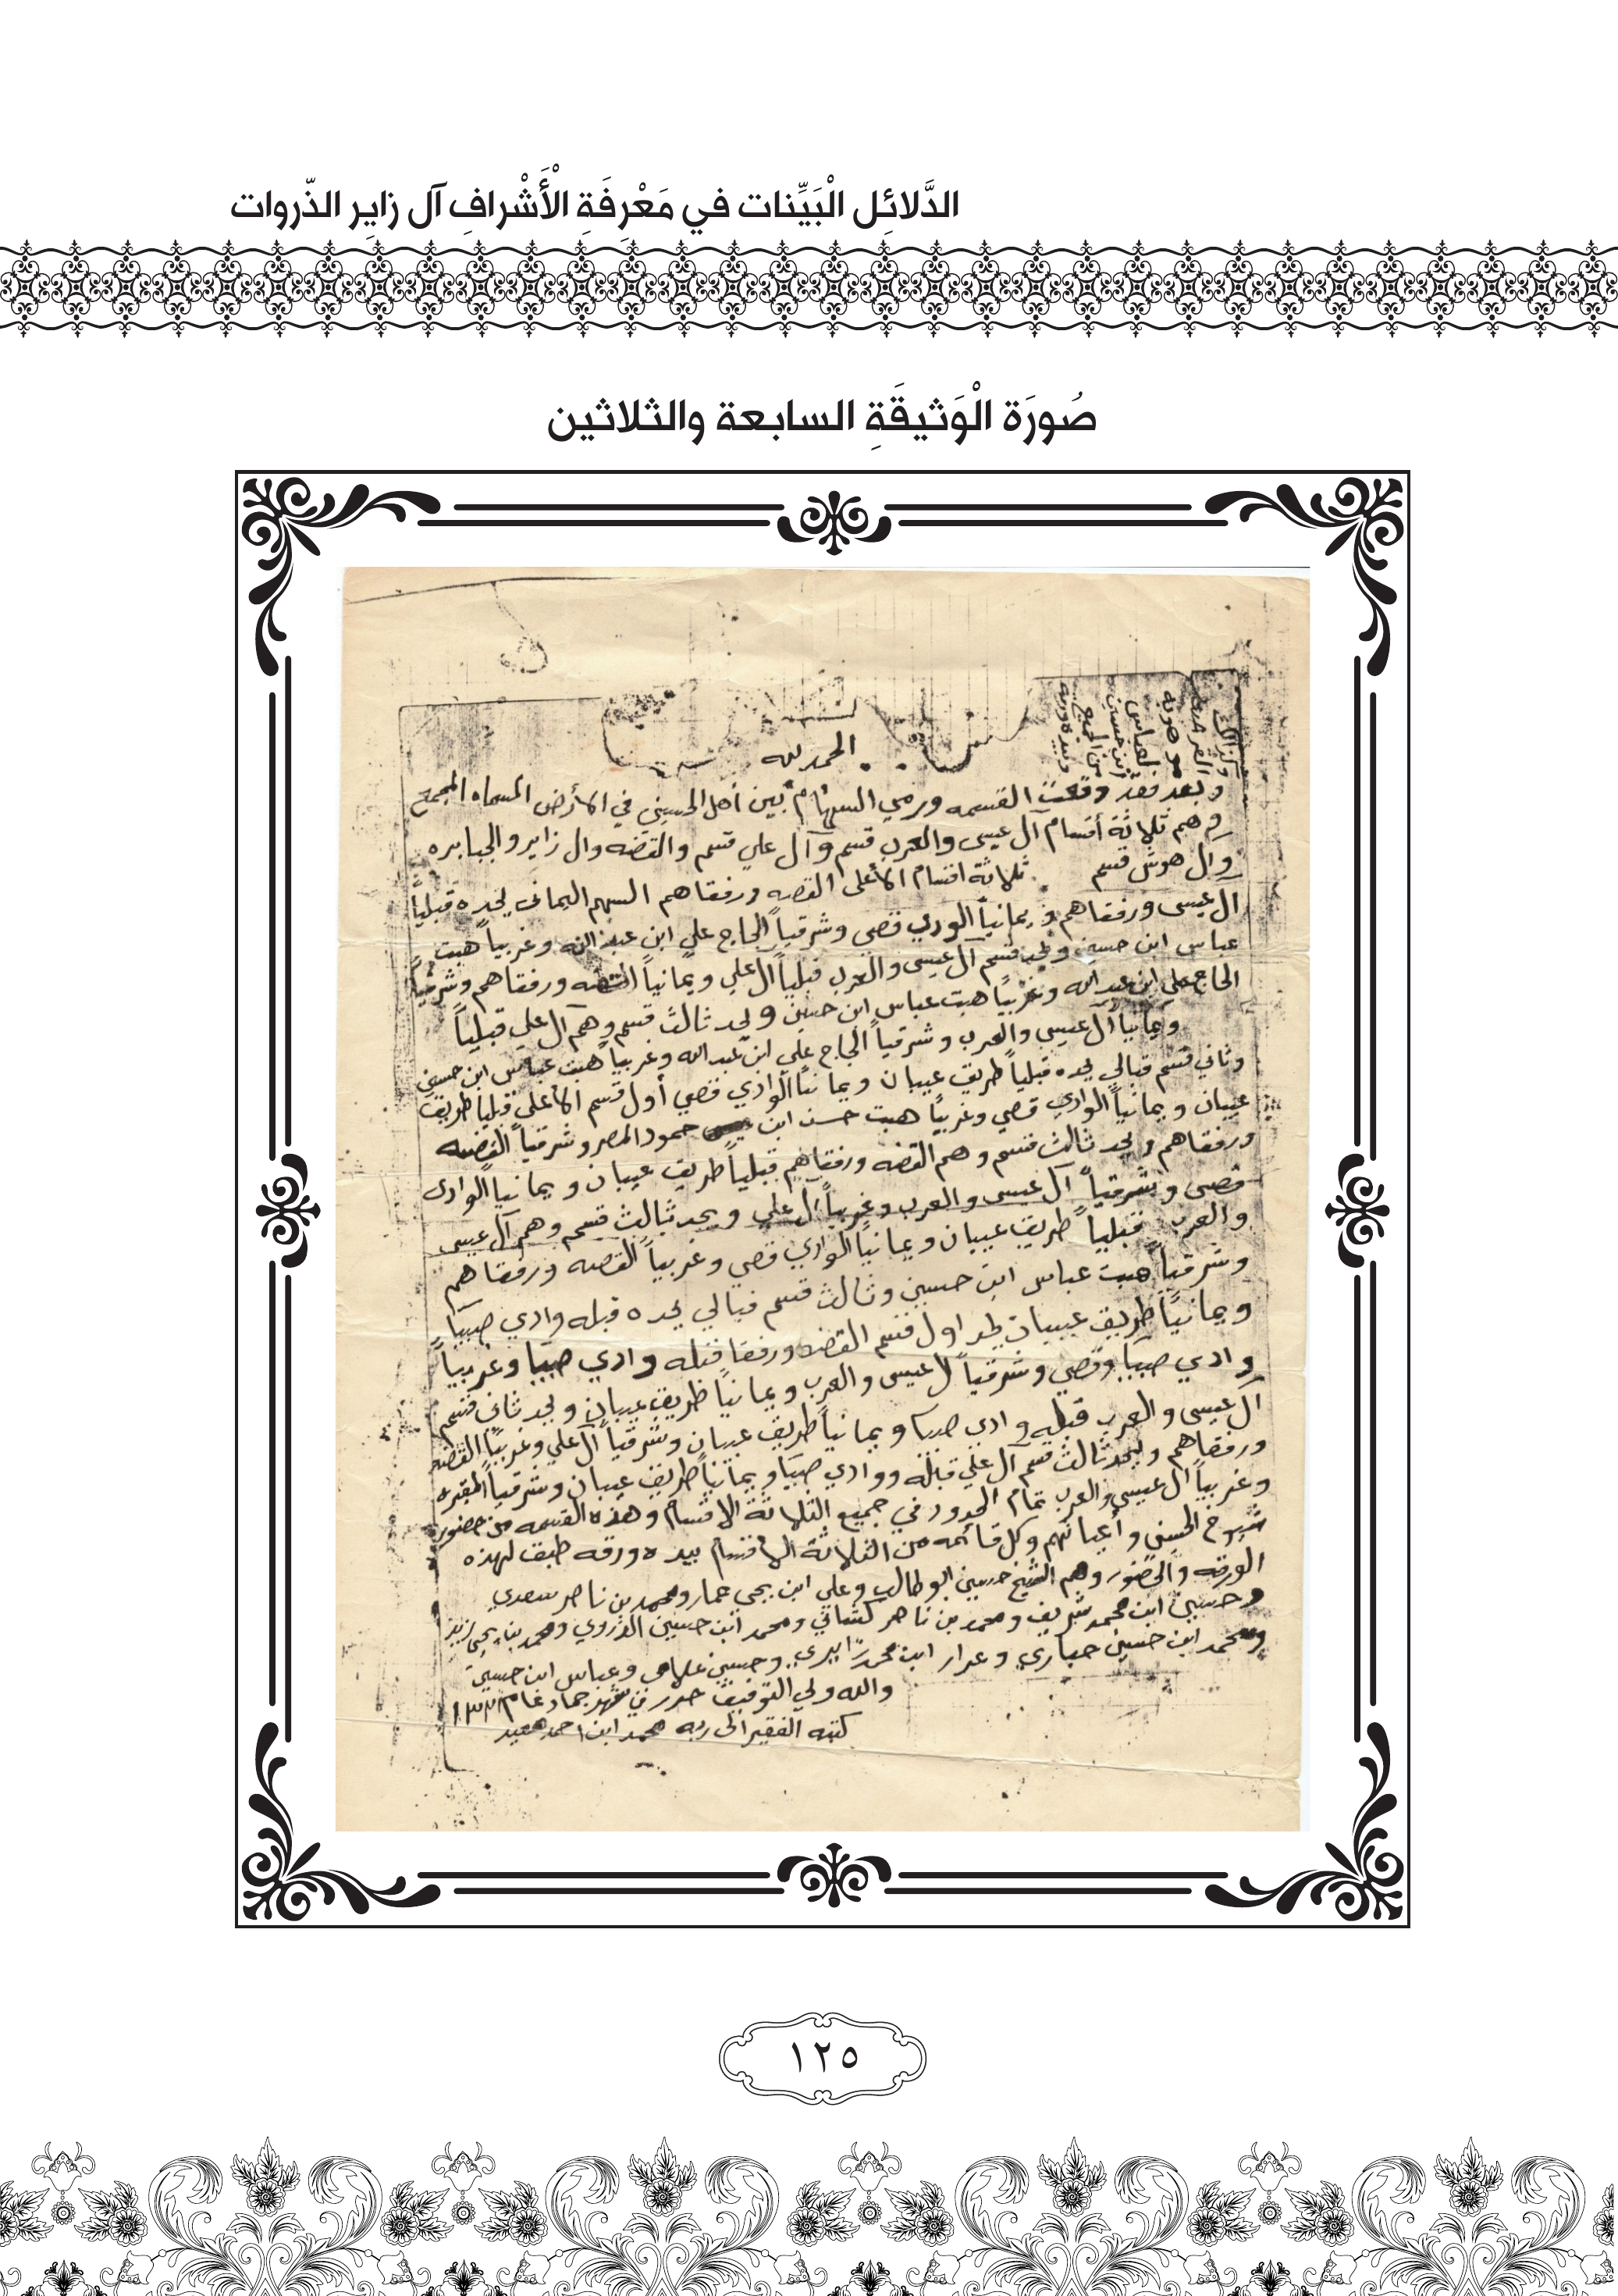 الدَّلائِل الْبَيِّنات في مَعْرِفَةِ الْأَشْرافِ آل زايِر الذّروات
صُورَة الْوَثيقَةِ السابعة والثلاثين
الحمد لله
وبعد فقد وقعت القسمه ورمي السهام بين أهل الحسيني في الأرض المسماه المجمع
وهم ثلاثة أقسام آل عيسى والعرب قسم وآل علي قسم والقضه وال زاير والجبابره
وال هوش قسم ثلاثة اقسام الأعلى القضه ورفقاهم السهم اليماني يحده قبلياً
ال عيسى ورفقاهم ويمانياً الودي قصي وشرقياً الحاج علي ابن عبدالله وغربياً هبت
عباس ابن حسين ويحد قسم آل عيسى والعرب قبلياً ال علي ويمانياً القضه ورفقاهم وشرقياً
الحاج علي ابن عبد الله وغربياً هبت عباس ابن حسين ويحد ثالث قسم وهم آل علي قبلياً
ويمانياً آل عيسى والعرب وشرقياً الحاج علي ابن عبدالله وغربياً هبت عباس ابن حسين
وثاني قسم قبالي يحده قبلياً طريق عيبان ويمانياً الوادي قصي أول قسم الأعلى قبلياً طريق
عيبان ويمانياً الوادي قصي وغربياً هبت حسن ابن حمود المصر وشرقياً القضه
ورفقاهم ويحد ثالث قسم وهم القضه ورفقاهم قبلياً طريق عيبان ويمانياً الوادي
قصي وشرقياً آل عيسى والعرب وغربياً ال علي ويحد ثالث قسم وهم آل عيسى
والعرب قبلياً طريق عيبان ويمانياً الوادي قصي وغربياً القضه ورفقاهم
وشرقياً هبت عباس ابن حسين وثالث قسم قبالي يحده قبله وادي صبيا
ويمانياً طريق عيبان يحد اول قسم القضه ورفقا قبله وادي صبيا وغربياً
وادي صبيا وقصي وشرقياً ال عيسى والعرب ويمانياً طريق عيبان ويحد ثاني قسم
آل عيسى والعرب قبله وادي صبيا ويمانياً طريق عيبان وشرقياً آل علي وغربياً القضه
ورفقاهم ويحد ثالث قسم آل علي قبله ووادي صبيا ويمانياً طريق عيبان وشرقياً المقبره
وغربياً ال عيسى والعرب تمام الحدود في جميع الثلاثة الاقسام وهذه القسمه من حضور
شيوخ الحسيني وأعيانهم وكل قائمه من الثلاثة الأقسام بيده ورقه طبق لهذه
الورقه والحضور وهم الشيخ حسين ابوطالب وعلي ابن يحي عمار ومحمد بن ناصر سعدي
وحسين ابن محمد شريف ومحمد بن ناصر كتناني ومحمد ابن حسين الذروي ومحمد بن يحي زيد
ومحمد ابن حسين جباري وعرار ابن محمد زايري وحسين علامي وعباس ابن حسين
والله ولي التوفيق حرر في شهر جماد عام
كتبه الفقير الى ربه محمد ابن احمد
١٢٥